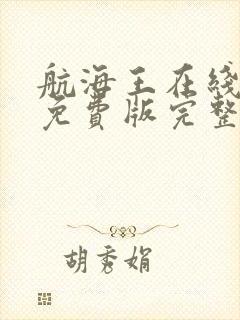 航海王在线
免費版完整
胡秀娟